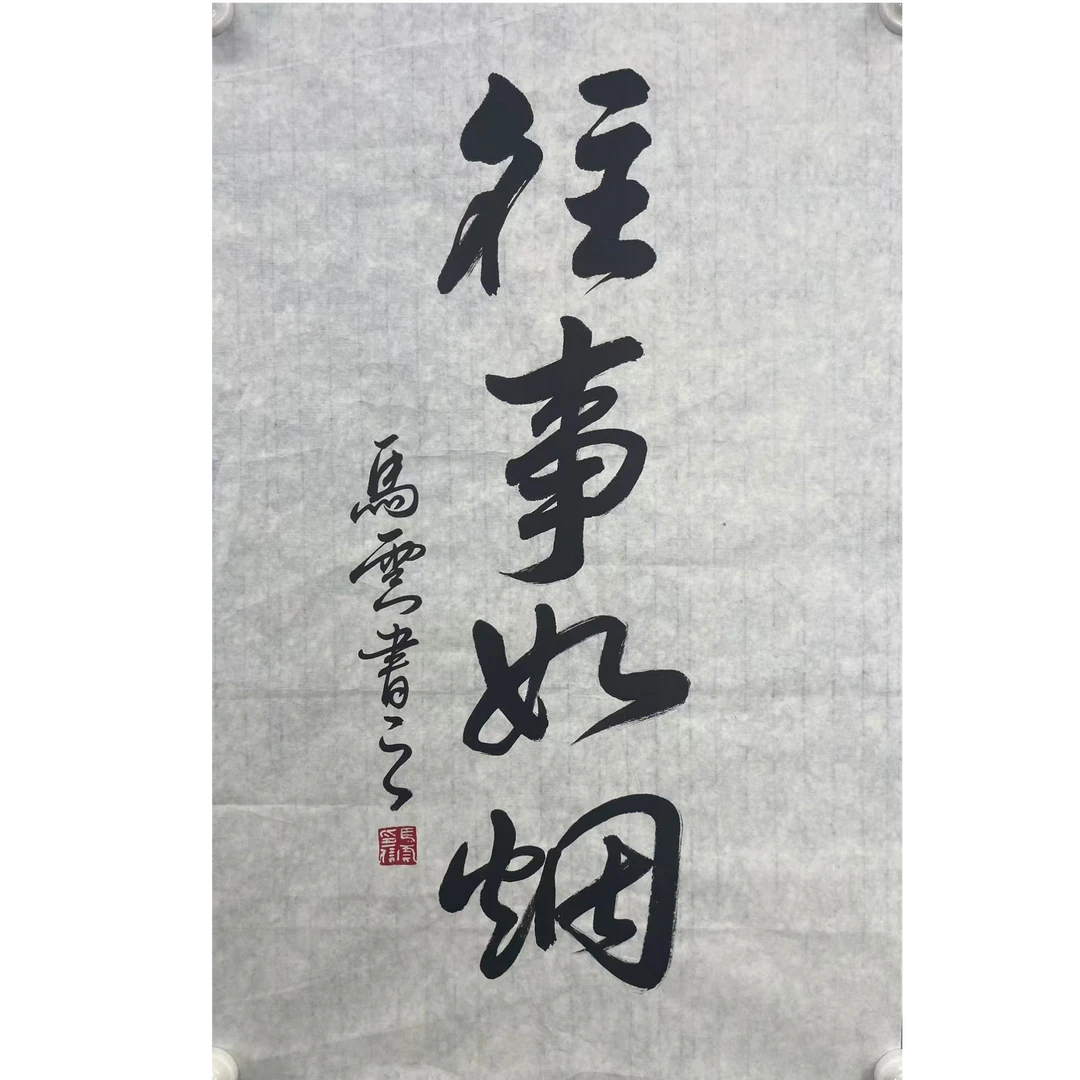 往事如烟
馬雲書之